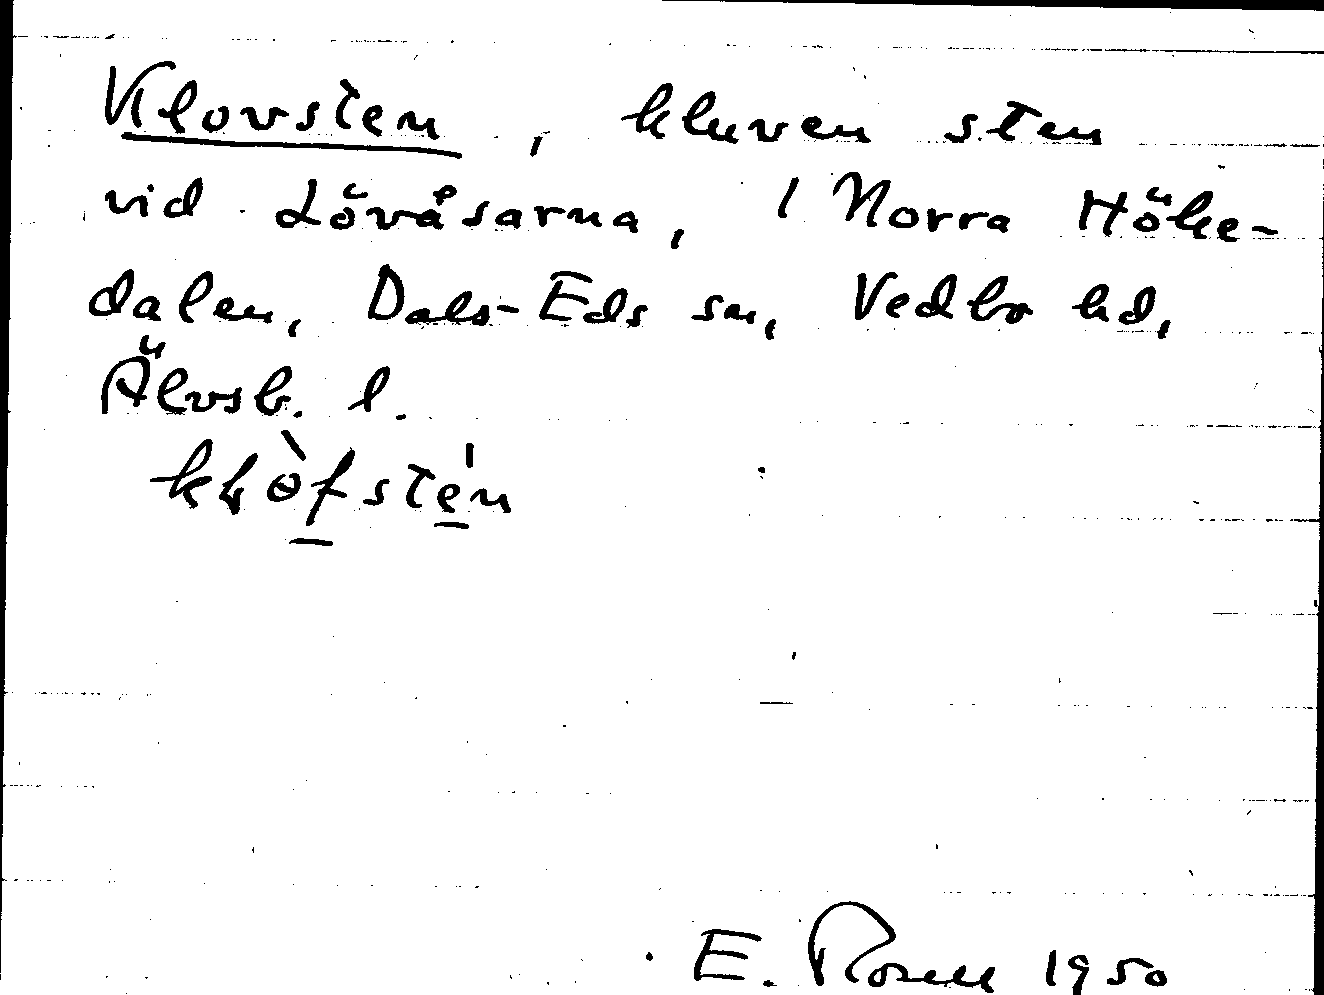 Klovsten, kluven sten
vid Lövåsarna, 1 Norra Höke-
dalen, Dals-Eds sn, Vedbo hd,
Älvsb. l.
E. Rosell 1950